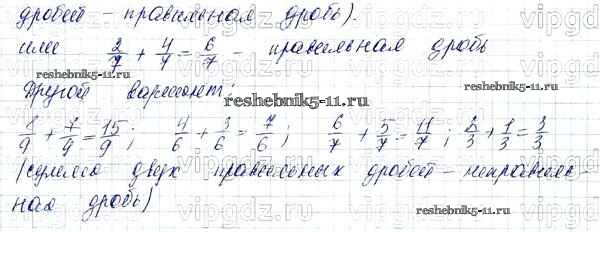 дробей – правильная дробь).
или 2/7 + 4/7 = 6/7 – правильная дробь
Другой вариант:
8/9 + 7/9 = 15/9; 4/6 + 3/6 = 7/6; 6/7 + 5/7 = 11/7; 2/3 + 1/3 = 3/3
(сумма двух правильных дробей – неправиль-
ная дробь)
reshebnik5-11.ru
reshebnik5-11.ru
reshebnik5-11.ru
reshebnik5-11.ru
vipgdz.ru
vipgdz.ru
vipgdz.ru